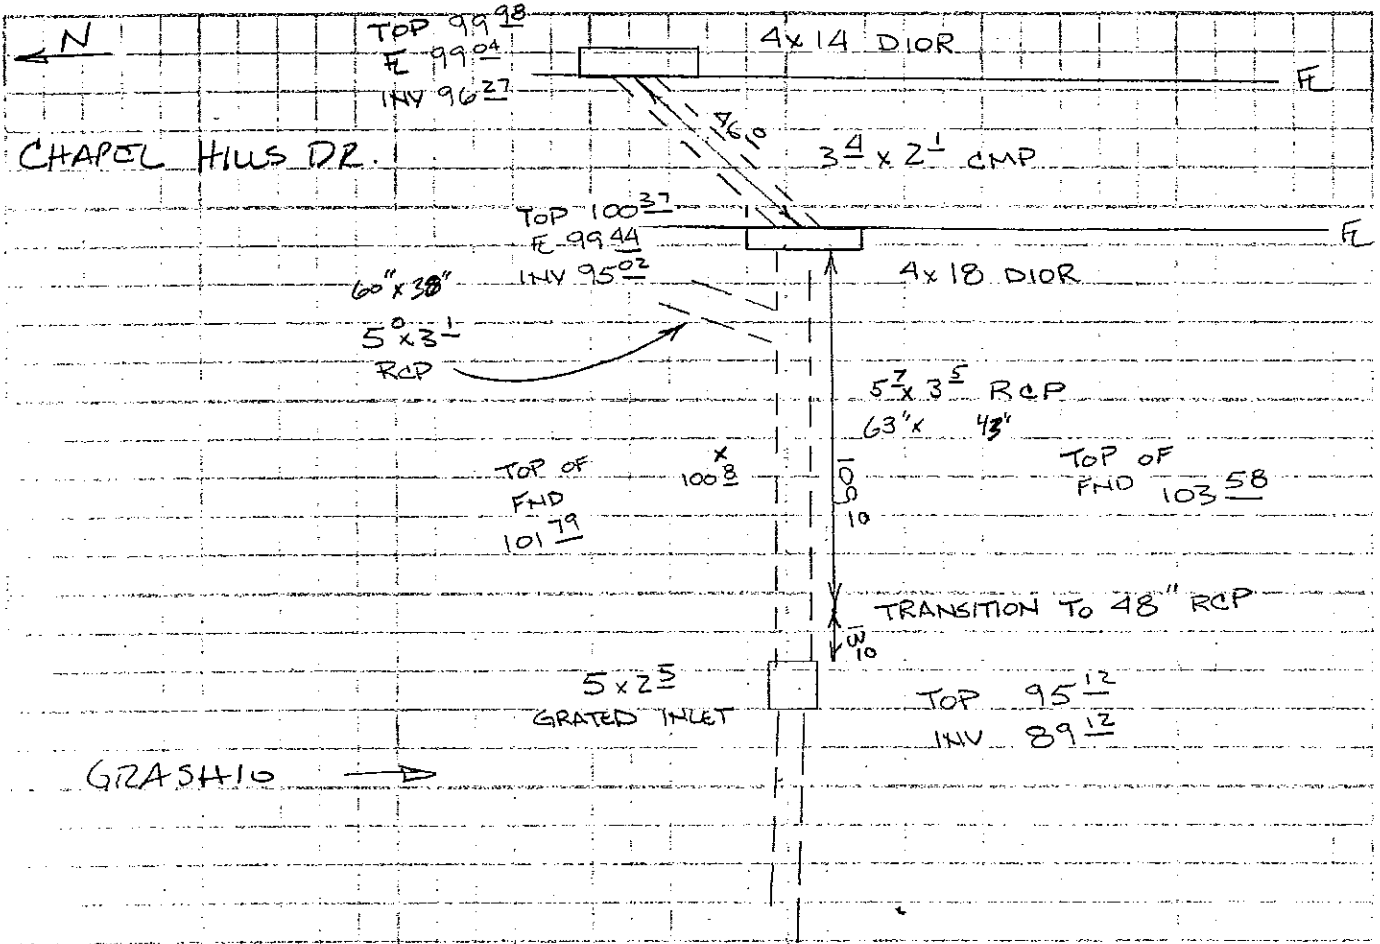 N
TOP 99 98
FL 99 04
INV 96 27
4x14 DIOR
FL
CHAPEL HILLS DR.
46.0
3 4 x 2 1 CMP
TOP 100 37
FL 99 44
INV 95 02
FL
4x18 DIOR
60" x 38"
5 0 x 3 1
RCP
5 7 x 3 5 RCP
63" x 43"
TOP OF
FND
101 79
x
100 8
TOP OF
FND 103 58
TRANSITION TO 48" RCP
5 x 2 5
GRATED INLET
TOP 95 12
INV 89 12
GRASHIO